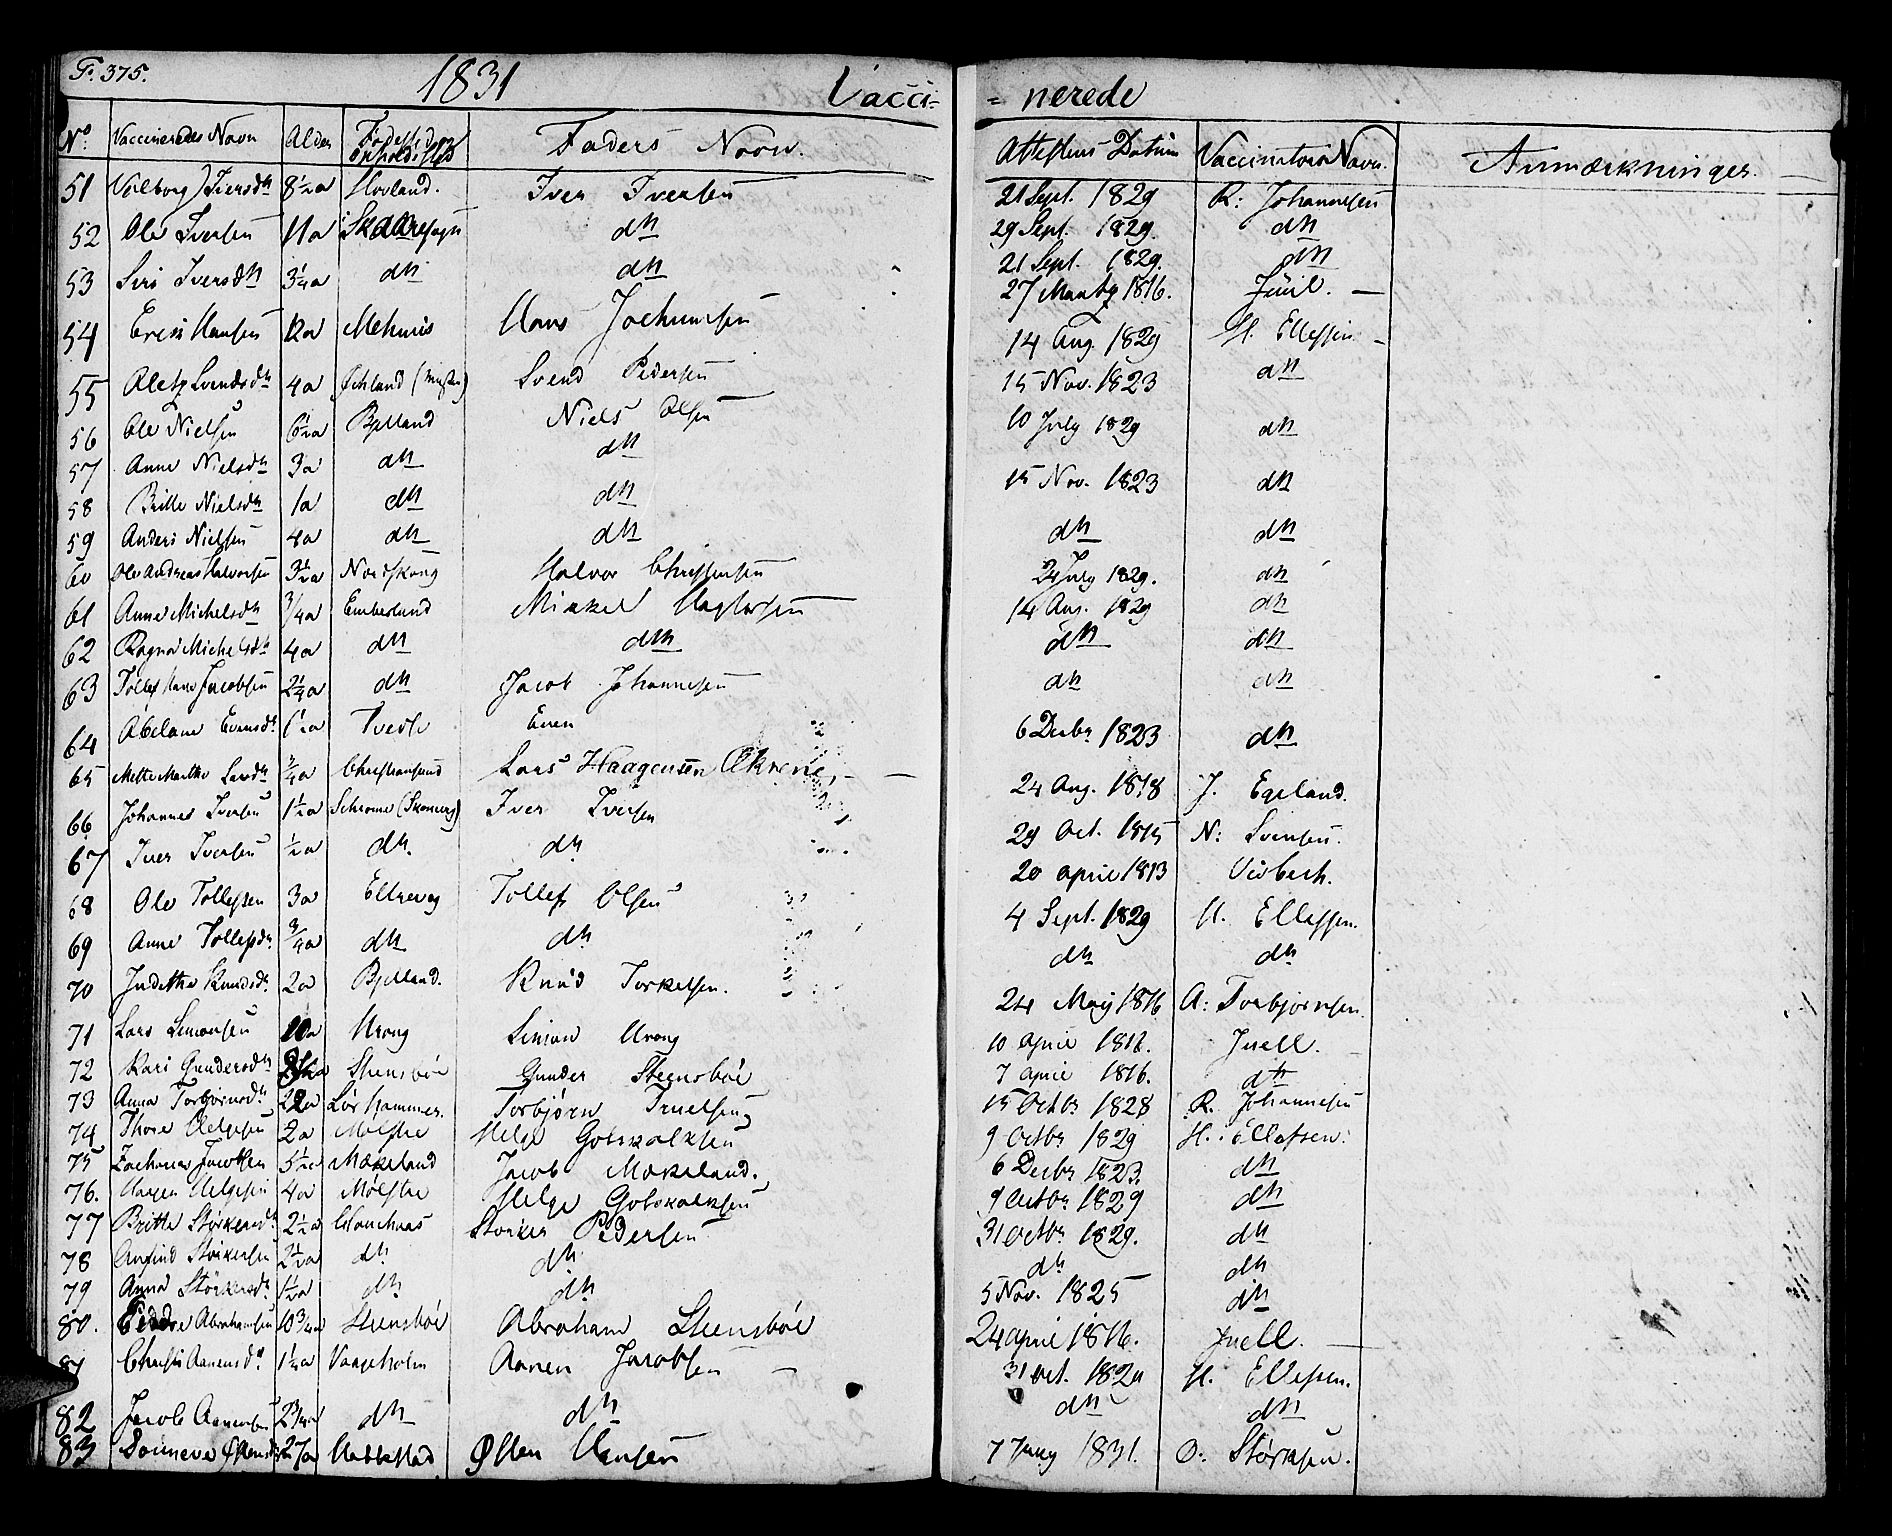 F. 375. 1831 Vacci= = nerede
No: Vaccineredes Navn Alder Fødested Opholdssted Faders Navn. Attestens Datum Vaccinatørs Navn. Anmærkninger.
51 Valborg Iversdn 8½a Hovland. Iver Iversen 21 Sept. 1829 R: Johannesen
52 Ole Iversen 11a dn 29 Sept. 1829. dn
53 Siri Iversdn 3¼a dn dn 21 Sept. 1829. dn
54 Erik Hansen 12a Hans Jochumsen 27 Martz 1816. Juul.
55 Aletz Svendsdn 4a Svend Pedersen 14 Aug. 1829 H. Ellefsen
56 Ole Nielsen 6½a Bjelland Niels Olsen 15 Nov. 1823 dn
57 Anne Nielsdn 3a dn dn 10 July 1829 dn
58 Britte Nielsdn 1a dn dn 15 Nov. 1823 dn
59 Anders Nielsen 4a dn dn dn dn
60 Ole Andreas Halvorsen 3½a Nordskong Halvor Christensen 24 July 1829. dn
61 Anne Michelsdn ¾a Emberland Mikkel 14 Aug. 1829 dn
62 Ragna Michelsdn 4a dn dn dn dn
63 Tollef Hans Jacobsen 2¼a dn Jacob Johannesen dn dn
64 Abelane Evensdn 6½a Tvedte Even 6 Decbr 1823 dn
65 Mette Marthe Larsdn ¾a Christiansund Lars Haagensen 24 Aug. 1818 J. Egeland.
66 Johannes Iversen 1½a Iver Iversen 29 Oct. 1815 N: Svensen.
67 Iver Iversen ½a dn. dn 20 april 1813
68 Ole Tollefsen 3a Eltrevog Tollef Olsen 4 Sept. 1829 H. Ellefsen.
69 Anne Tollefsdn ¾a dn dn dn dn
70 Judethe Knudsdn 2a Bjelland. Knud Torkelsen. 24 May 1816 A: Torbjørnsen.
71 Lars Simonsen 10a Urang Simon Urang 10 april 1812. Juell.
72 Kari Gundersdn Steensbøe Gunder Steensbøe 7 april 1816. dn
73 Anna Torbjørnsdn Lørhammer. Torbjørn Truelsen 15 Octbr 1828 R. Johannesen
74 Thore Helgesen 2a Mølstre Helge Gotskalksen 9 Octbr 1829 H. Ellefsen.
75 Zacharias Jacobsen 5½a Mækeland Jacob Mækeland. 6 Decbr 1823. dn
76. Haagen Helgesen 4a Mølstre Helge Gotskalksen 9 Octbr 1829 dn
77 Britte Størkersdn 2½a Størker Pedersen 31 Octbr 1829. dn
78 Arnfind Størkersen 2½a dn dn dn dn
79 Anna Størkersdn 1½a dn dn 5 Nov. 1825 dn
80. Peder Abrahamsen 10¾a Steensbøe Abraham Steensbøe 24 april 1816. Juell.
81 Christi Aanensdn 1½a Vaageholm Aanen Jacobsen 31 Oct. H. Ellefsen.
82 Jacob Aanensen 2¾a dn dn dn dn
83 Sønneva Østensdn Hattestad Østen Hansen 7 1831. O: Størksen.